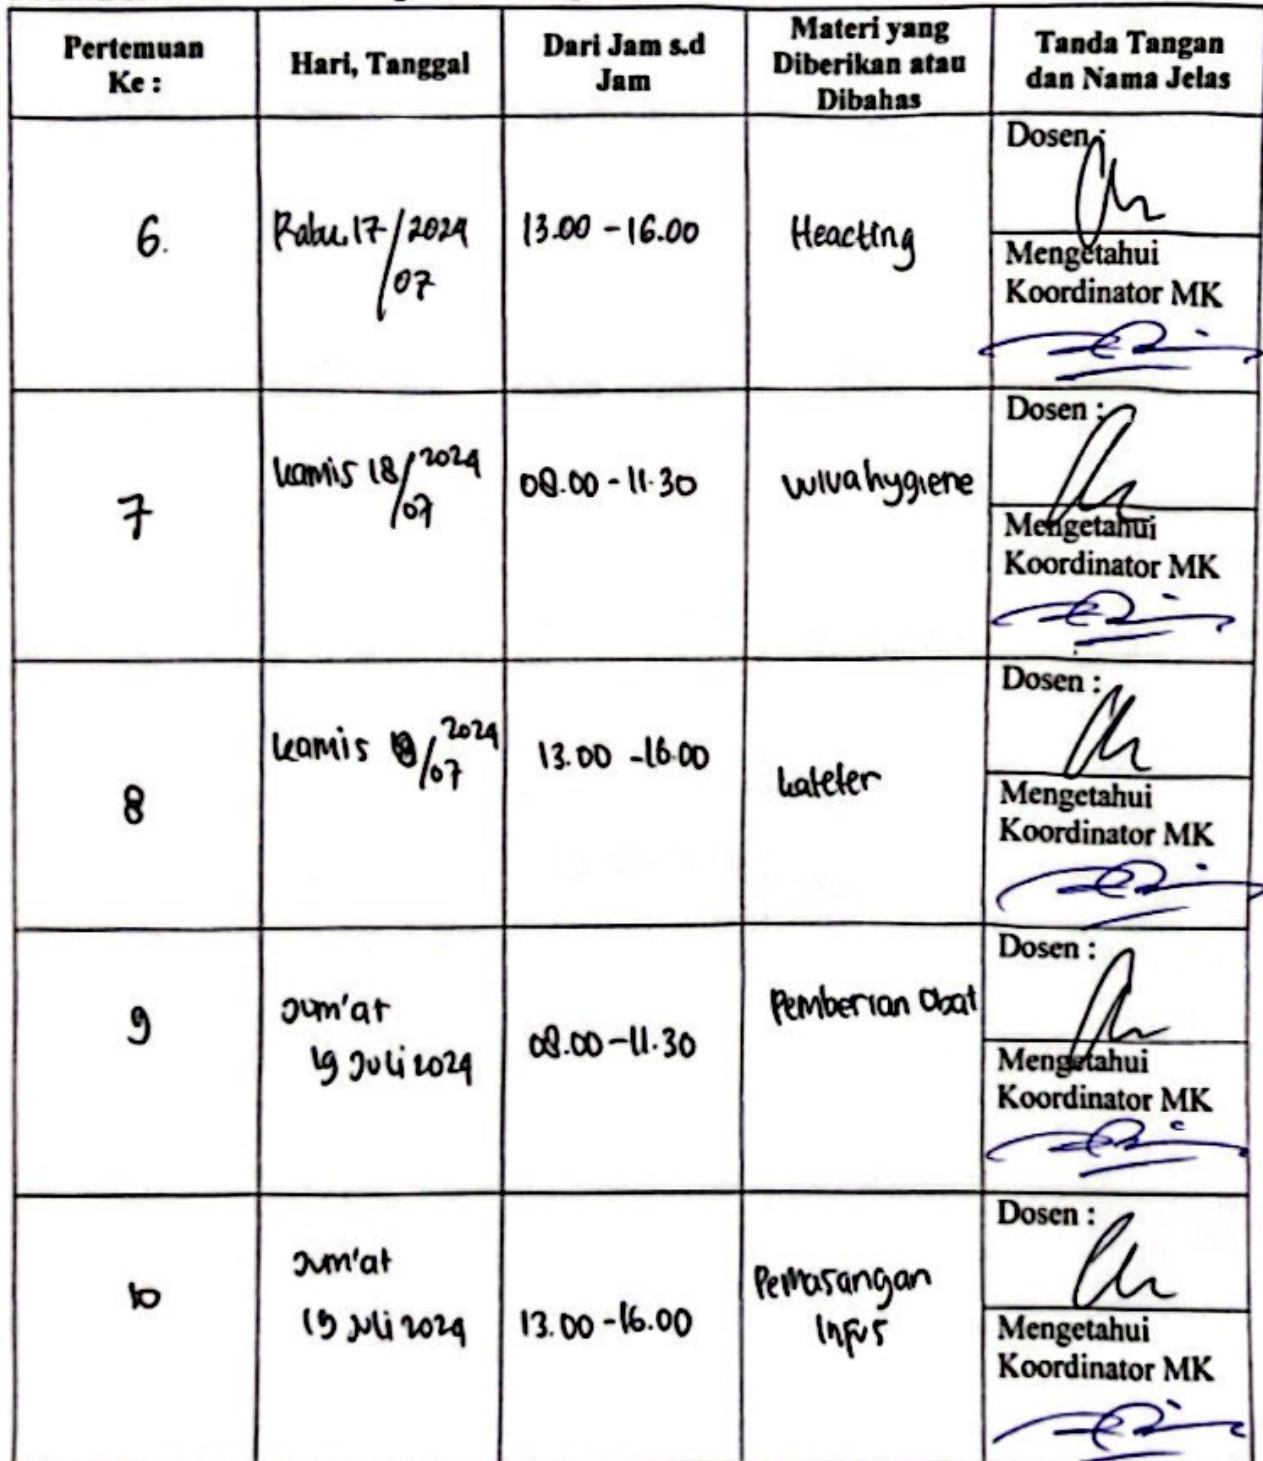 Pertemuan
Ke :
Hari, Tanggal
Dari Jam s.d
Jam
Materi yang
Diberikan atau
Dibahas
Tanda Tangan
dan Nama Jelas
6.
Rabu, 17/2024
07
13.00 - 16.00
Heacting
Dosen :
Mengetahui
Koordinator MK
7
kamis 18/2024
07
08.00 - 11.30
vulva hygiene
Dosen :
Mengetahui
Koordinator MK
8
kamis 18/2024
07
13.00 - 16.00
kateter
Dosen :
Mengetahui
Koordinator MK
9
Jum'at
19 Juli 2024
08.00 - 11.30
Pemberian Obat
Dosen :
Mengetahui
Koordinator MK
10
Jum'at
19 Juli 2024
13.00 - 16.00
Pemasangan
Infus
Dosen :
Mengetahui
Koordinator MK